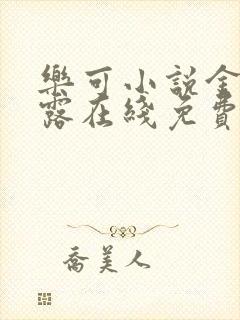 樂可小說金
露在綫免費
喬美人